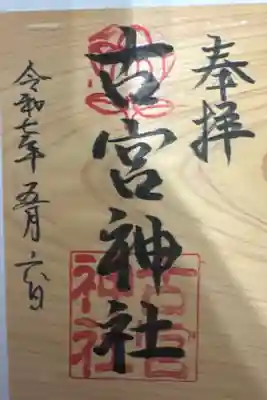 奉拝
古宮神社
古宮
神社
令和七年五月六日